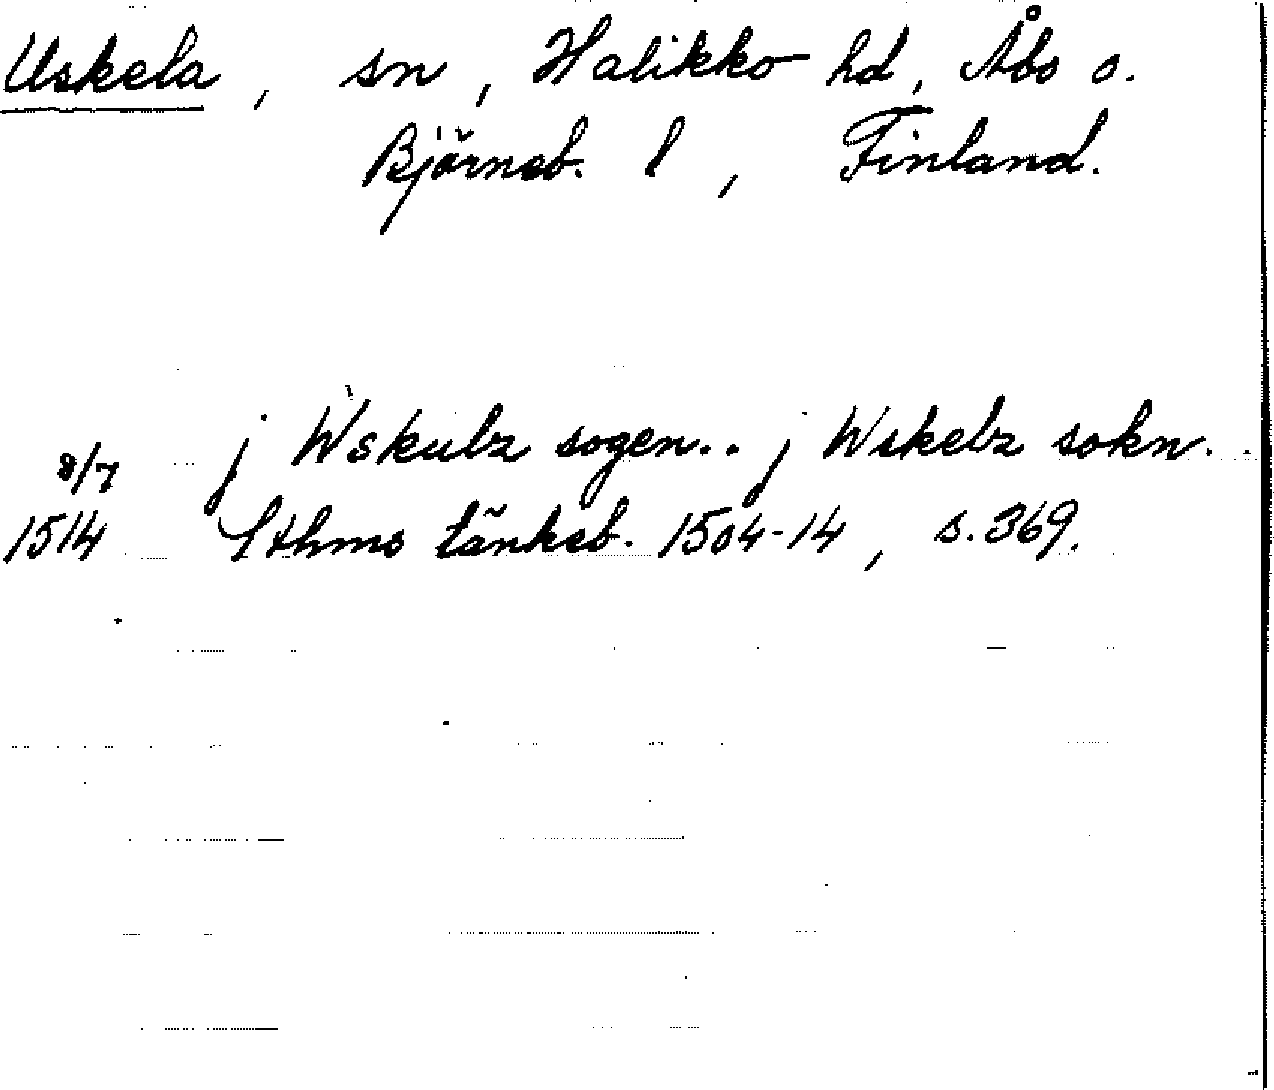 Uskela, sn, Halikko hd, Åbo o.
Björneb. l, Finland.
8/7 j Wskulz sogen.. j Wskelz sokn..
1514 Sthms tänkeb. 1504-14, s. 369.